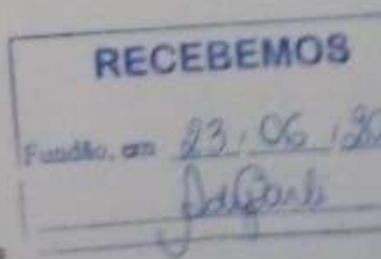 RECEBEMOS
Fundão, em 23, 06, 20